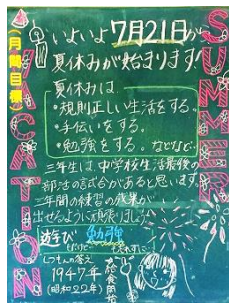 月間目標
VACATION
SUMMER
いよいよ7月21日から
夏休みが始まります!
夏休みは
・規則正しい生活をする。
・手伝いをする。
・勉強をする。などなど、
三年生は、中学校生活最後の
部活の試合があると思います。
二年間の練習の成果が
出せるように頑張りましょう
遊び 勉強
しつもんの答え
1947年
(昭和22年)